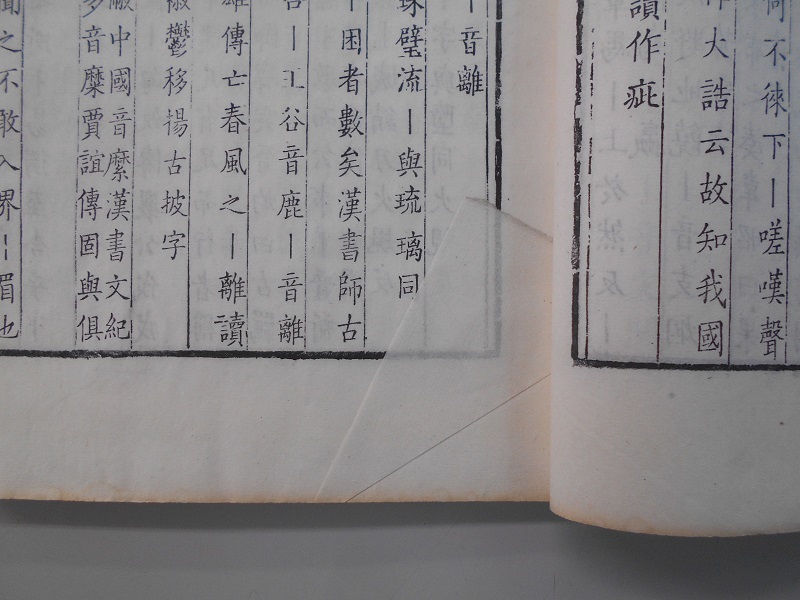 何不徠下丨嗟嘆聲
作大誥云故知我國
讀作疵
丨音離
珠璧流丨與琉璃同
丨困者數矣漢書師古
谷丨王谷音鹿丨音離
雄傳亡春風之丨離讀
被鬱移揚古披字
中國音縻漢書文紀
多音糜賈誼傳固與俱
聞之不敢入界丨眉也